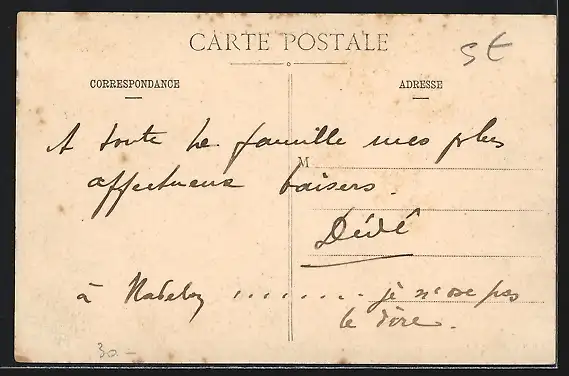 CARTE POSTALE
CORRESPONDANCE
ADRESSE
A toute la famille mes plus
M
affectueux baisers.
Dédé
à Nadelon ........ je n'ose pas
le dire.
30.-